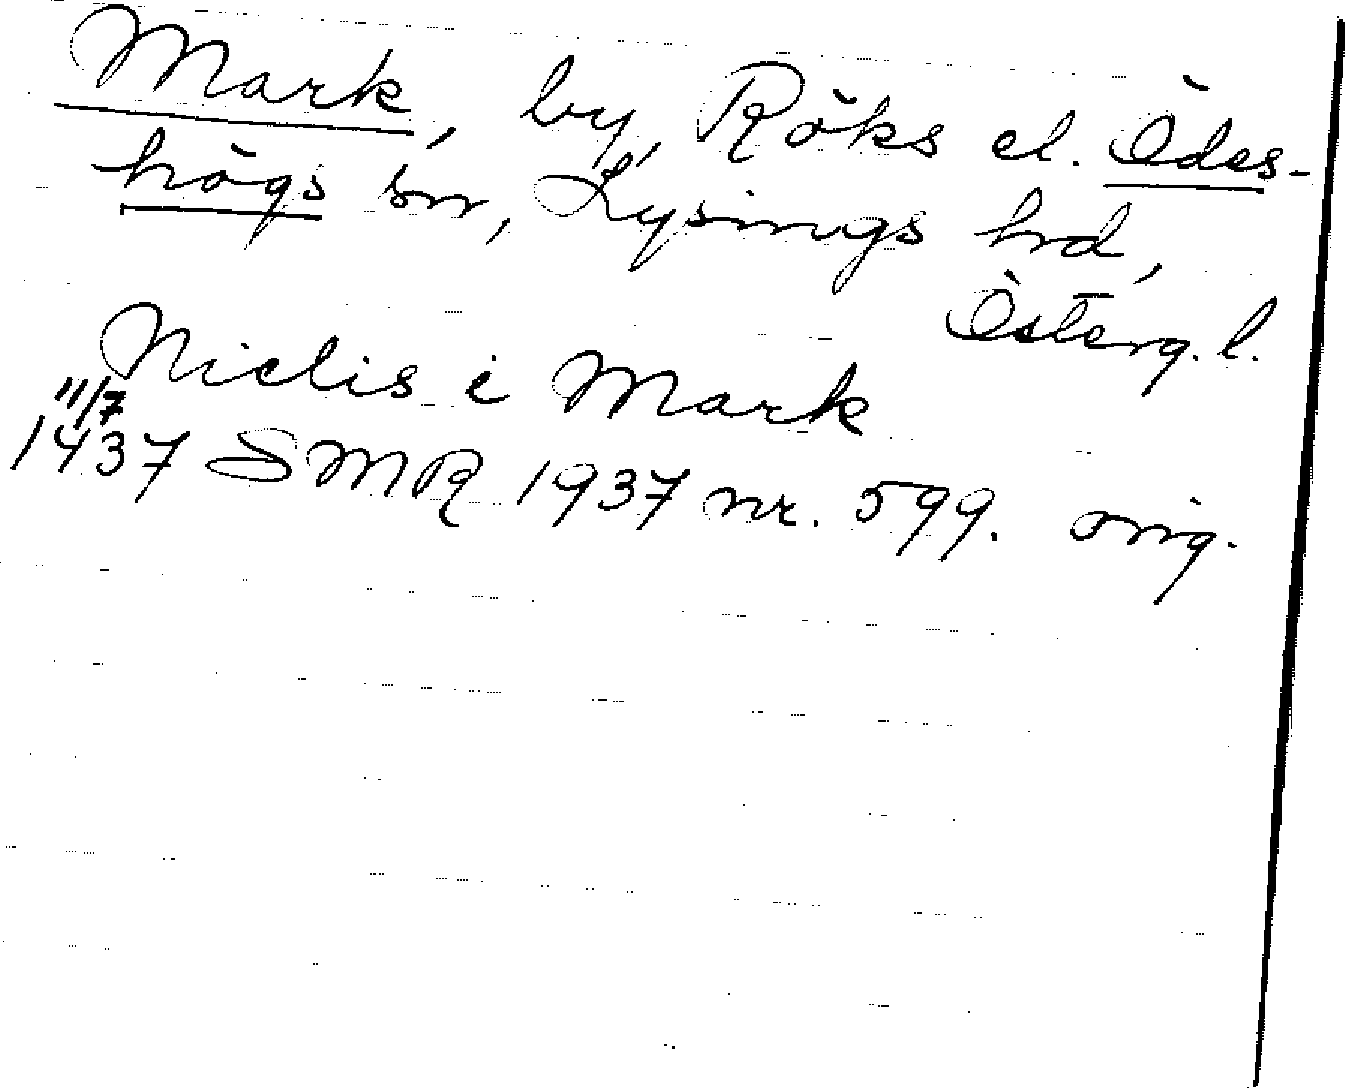 Mark, by, Röks el. Ödes-
högs sn, Lysings hd,
Österg. l.
Niclis i Mark
11/7
1437 SMR 1937 nr. 599. orig.